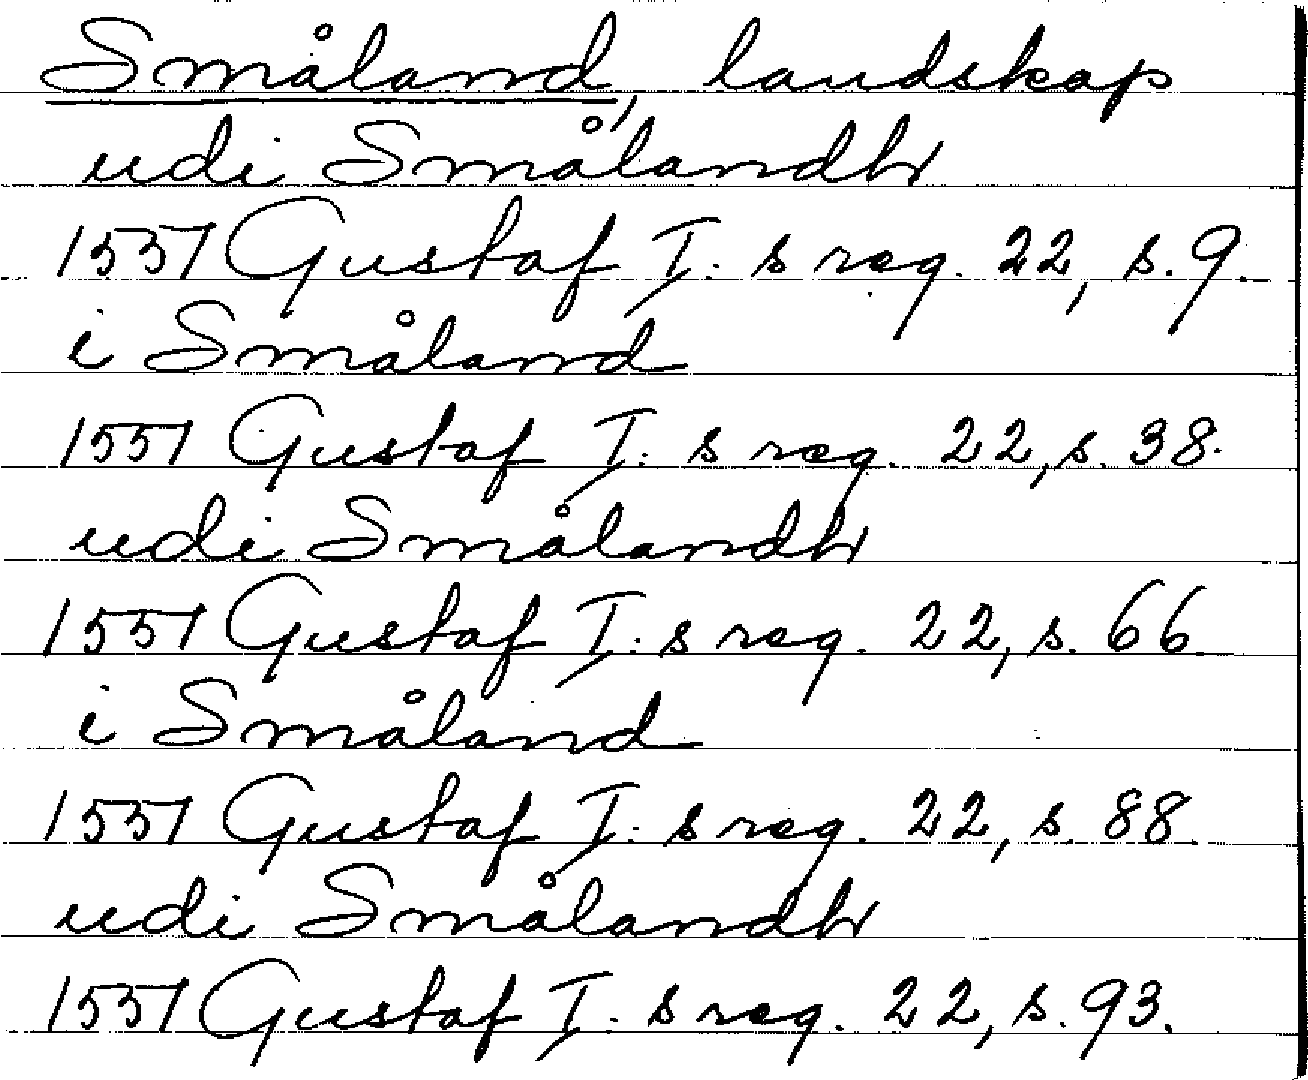 Småland, landskap
udi Smålandh
1551 Gustaf I:s reg. 22, s. 9.
i Småland
1551 Gustaf I:s reg. 22, s. 38.
udi Smålandh
1551 Gustaf I:s reg. 22, s. 66
i Småland
1551 Gustaf I:s reg. 22, s. 88
udi Smålandh
1551 Gustaf I:s reg. 22, s. 93.